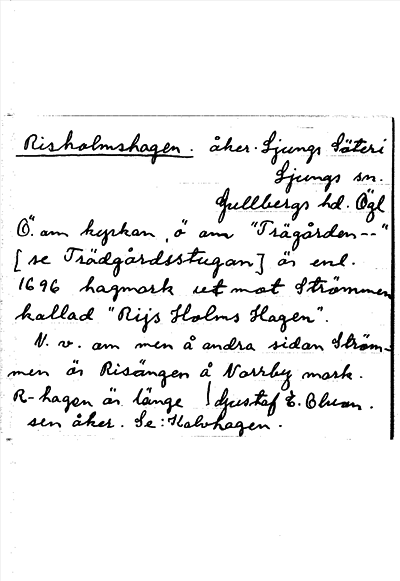 Risholmshagen. åker. Ljungs Säteri
Ljungs sn.
Gullbergs hd. Ögl
Ö. om kyrkan, ö om "Trägården--"
[se Trädgårdsstugan] är enl.
1696 hagmark ut mot Strömmen
kallad "Rijs Holms Hagen".
N. v. om men å andra sidan Ström-
men är Risängen å Norrby mark.
R-hagen är länge
sen åker. Se: Kalvhagen.
Gustaf E.